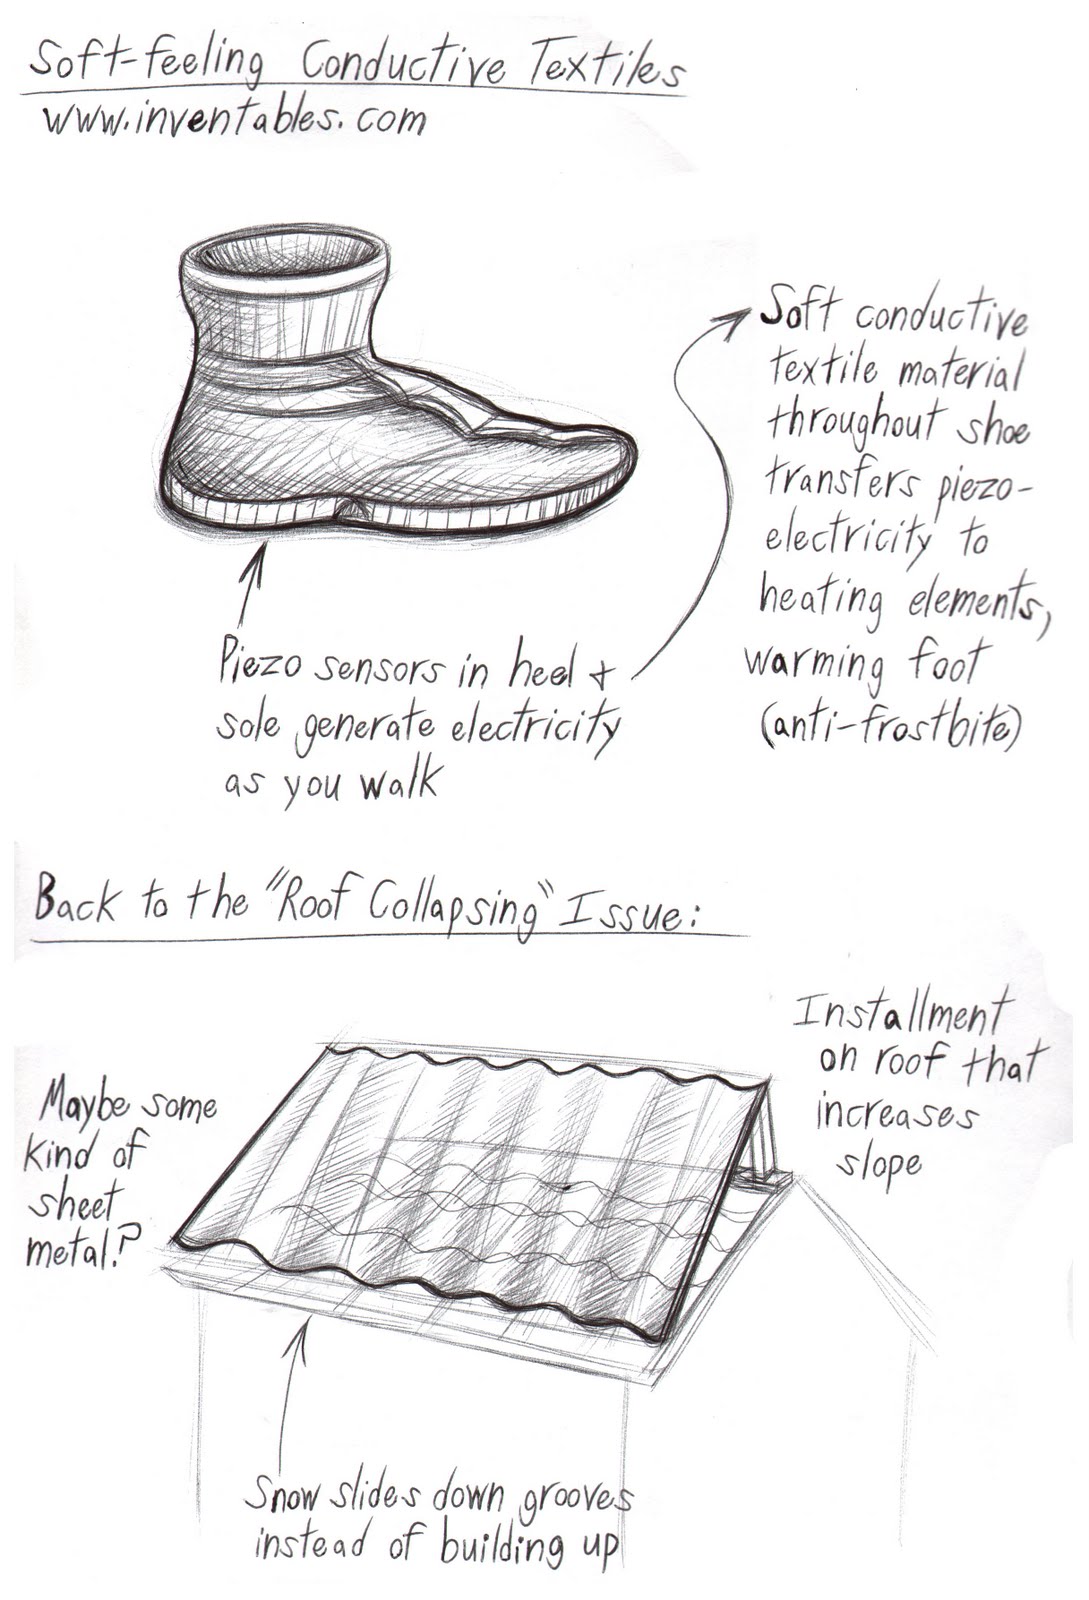 Soft-feeling Conductive Textiles
www.inventables.com
Soft conductive
textile material
throughout shoe
transfers piezo-
electricity to
heating elements,
warming foot
(anti-frostbite)
Piezo sensors in heel +
sole generate electricity
as you walk
Back to the "Roof Collapsing" Issue:
Installment
on roof that
increases
slope
Maybe some
kind of
sheet
metal?
Snow slides down grooves
instead of building up